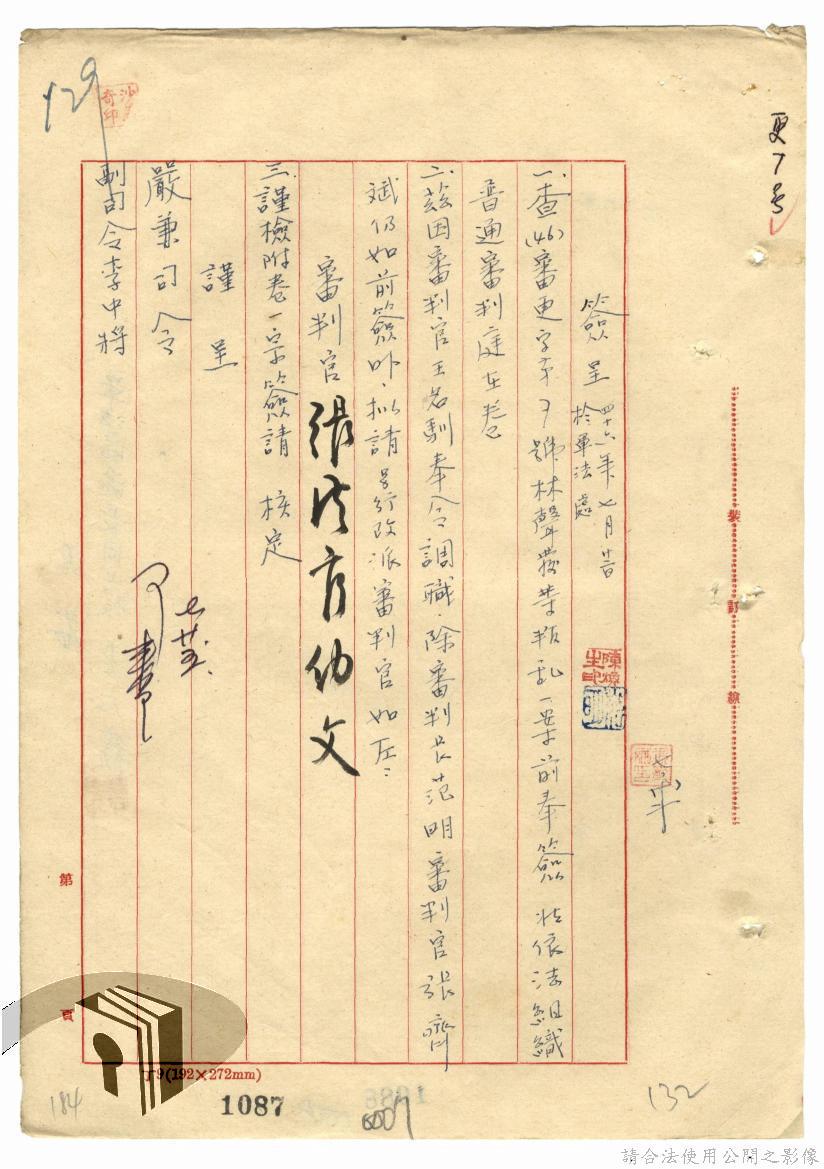 更7号
簽呈
四十六年七月廿日
於軍法處
一、查(46)審更字第7號林聲發等叛乱一案前奉簽准依法組織
普通審判庭在卷
二、茲因審判官王名馴奉令調職、除審判長范明審判官張齊
斌仍如前簽外、拟請另行改派審判官如左:
審判官
三、謹檢附卷一宗簽請 核定
謹呈
嚴兼司令
副司令李中將
129
裝訂線
第頁
丁9(192×272mm)
1087
184
132
請合法使用公開之影像